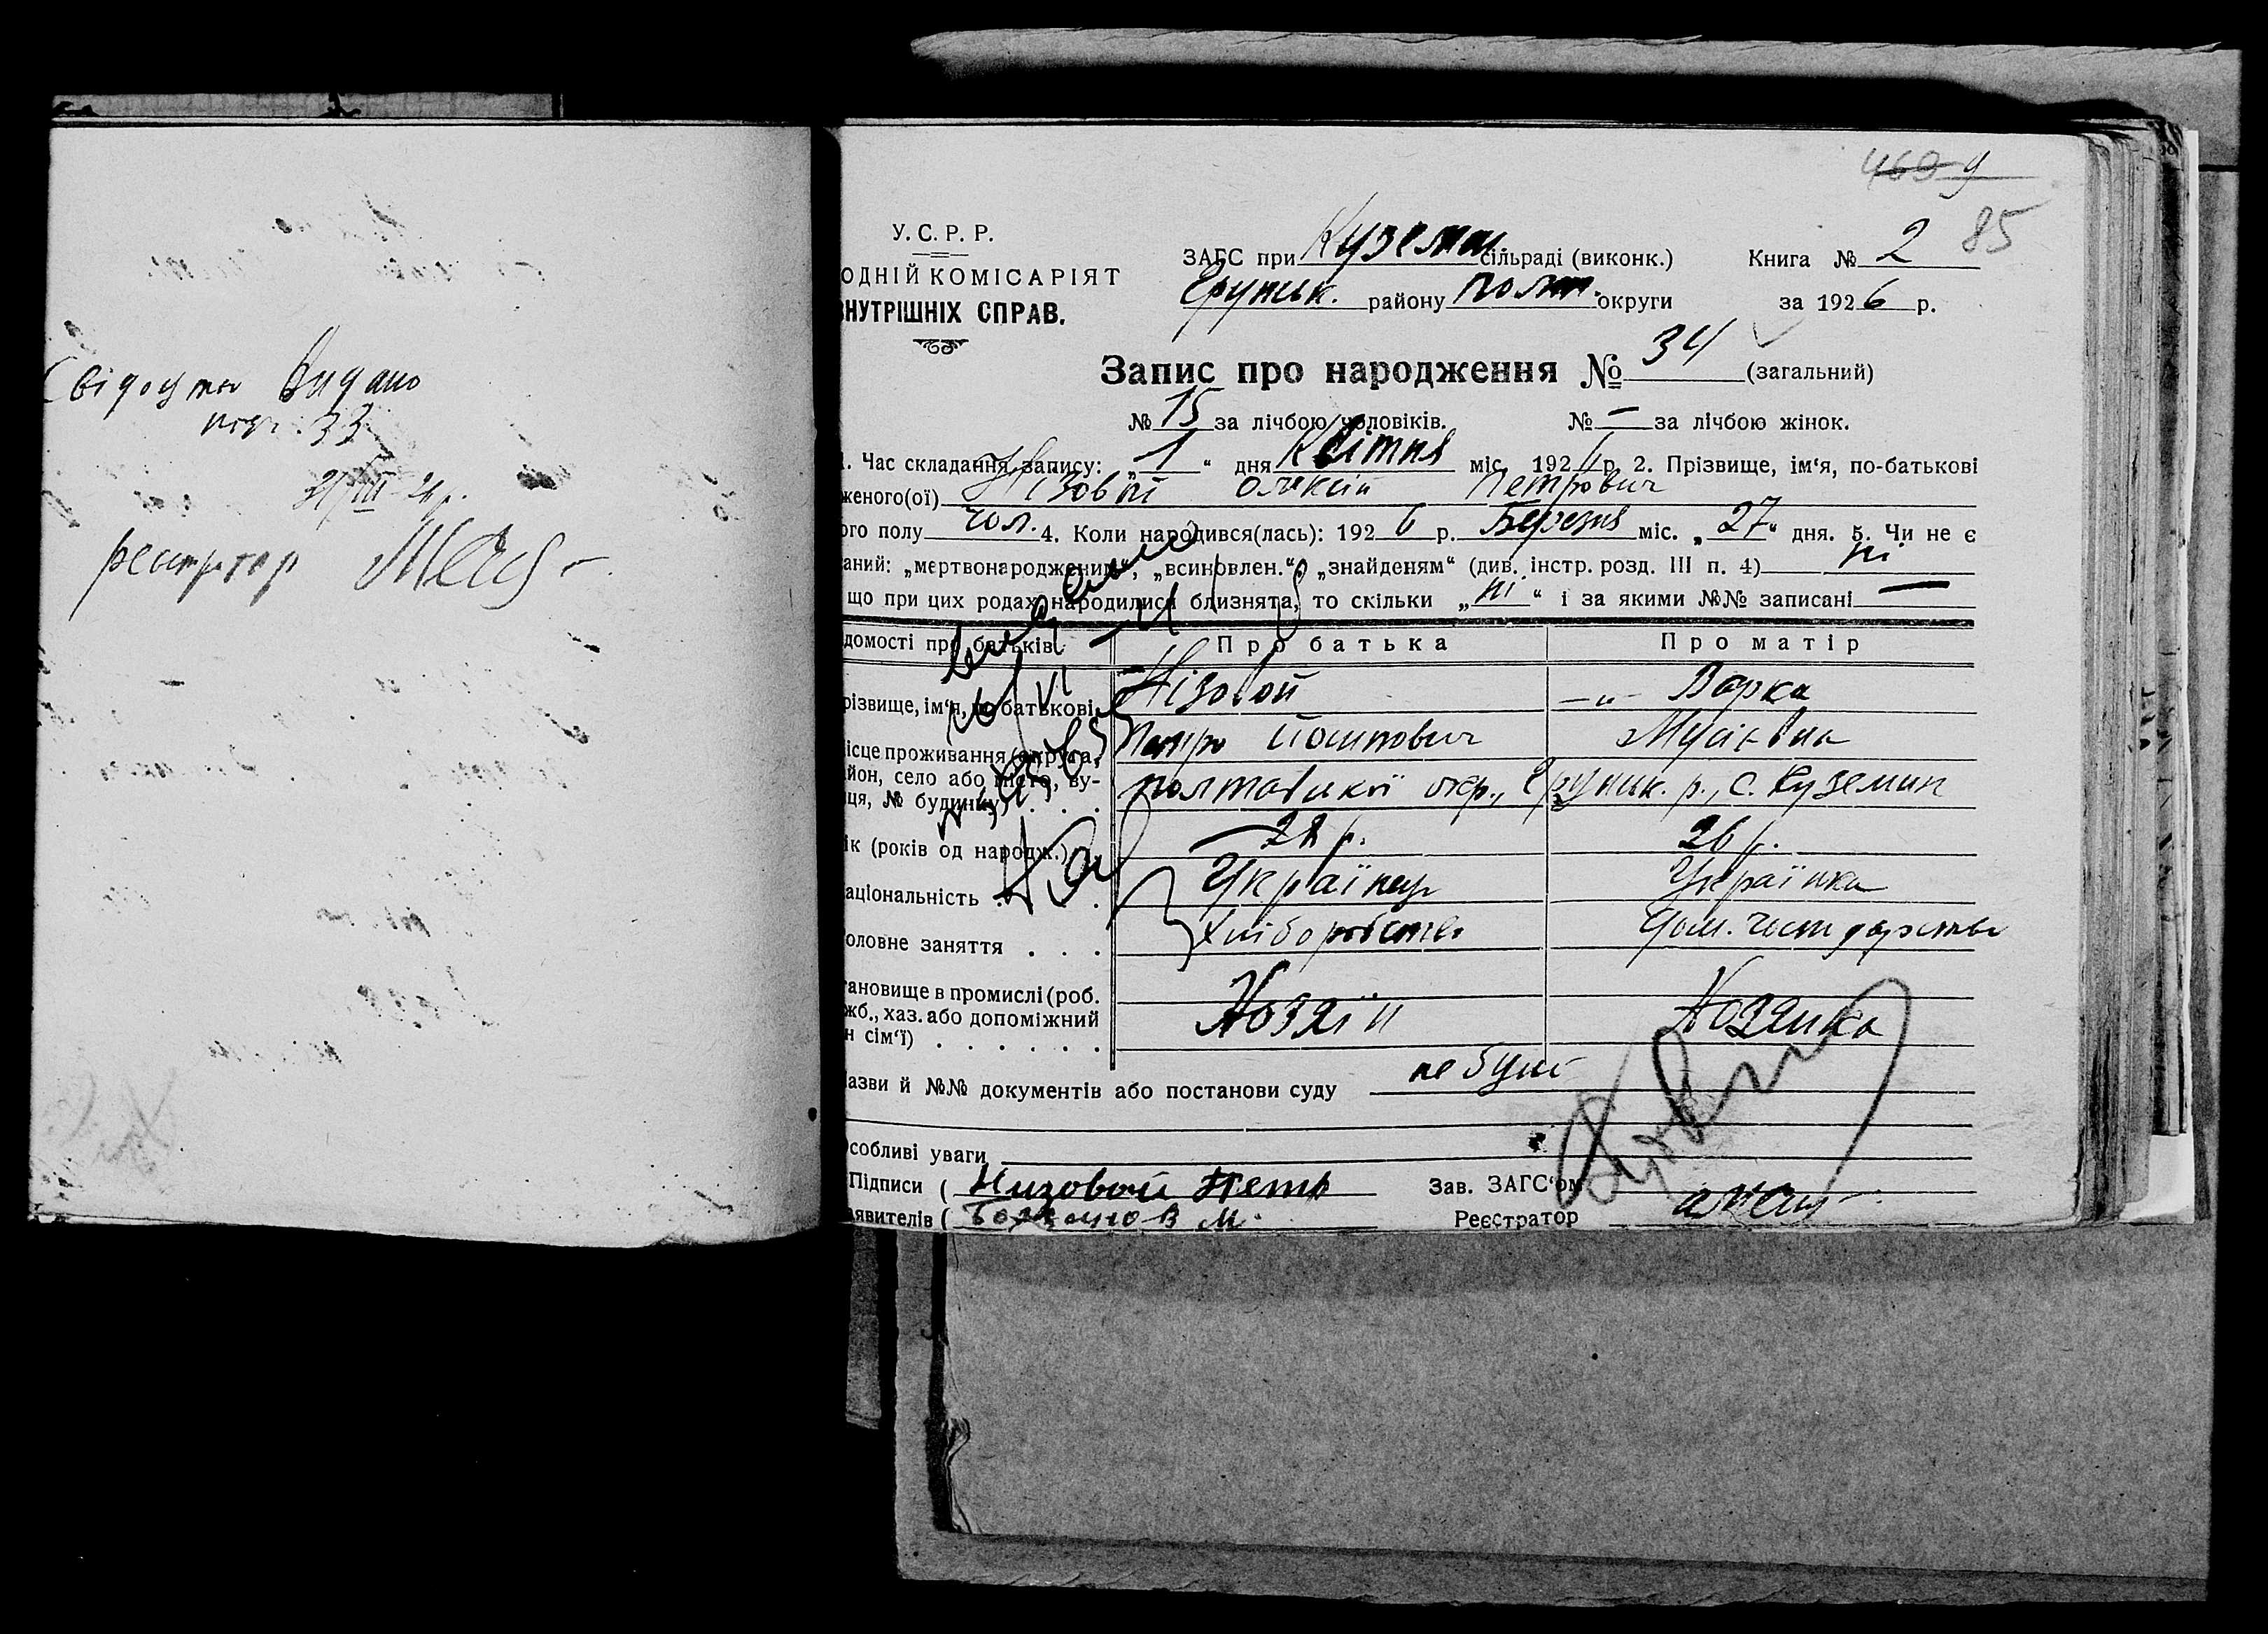 Свідоцтво видано
реєстратор
85
У. С. Р. Р.
ОДНІЙ КОМІСАРІЯТ
НУТРІШНІХ СПРАВ.
ЗАГС при Куземи сільраді (виконк.)
Книга № 2
Грунськ. району Полт. округи
за 1926 р.
Запис про народження № 34 (загальний)
№ 15 за лічбою чоловіків. № — за лічбою жінок.
1. Час складання запису: „1“ дня Квітня міс. 192 р. 2. Прізвище, ім‘я, по-батькові
женого(ої) Нізовий Олексій Петрович
ого полу чол. 4. Коли народився(лась): 1926 р. Березня міс. „27“ дня. 5. Чи не є
аний: „мертвонародженим“, „всиновлен.“, „знайденям“ (див. інстр. розд. III п. 4) ні
що при цих родах народилися близнята, то скільки „ні“ і за якими №№ записані —
домості про батьків
Про батька
Про матір
різвище, ім‘я, по батькові
Нізовой
—„— Варка
Петро Йосипович
Мусіївна
ісце проживання (округа,
йон, село або місто, ву-
ця, № будинку) . . .
Полтавської окр., Грунськ. р., с. Куземин
ік (років од народж.)
28 р.
26 р.
аціональність . . .
Українець
Українка
оловне заняття . . .
Хліборобство
Дом. господарство
тановище в промислі (роб.
жб., хаз. або допоміжний
н сім‘ї) . . . . . .
Хозяїн
Хозяйка
азви й №№ документів або постанови суду не було
собливі уваги
Підписи ( Низовой Петр
Зав. ЗАГС‘ом
аявителів (
Реєстратор